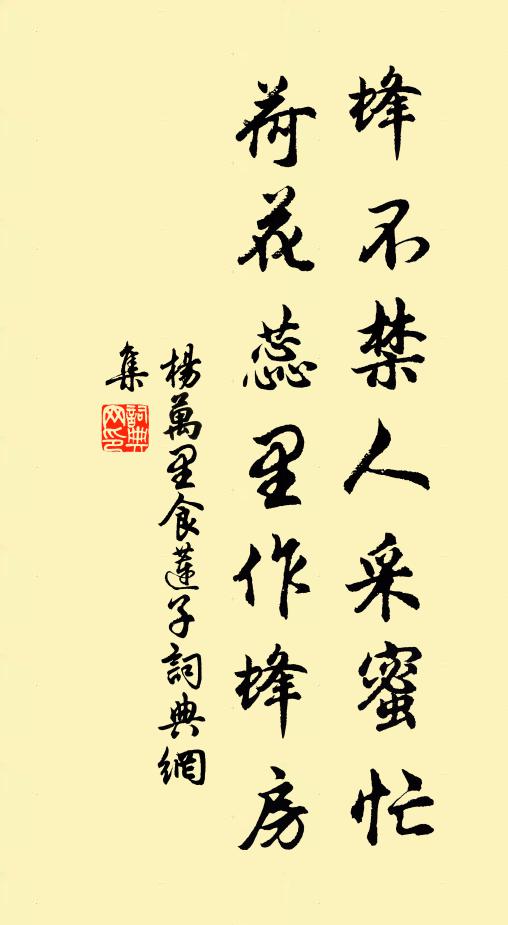 蜂不禁人采蜜忙
荷花蕊里作蜂房
楊萬里食蓮子詞典網
集
詞典
网印